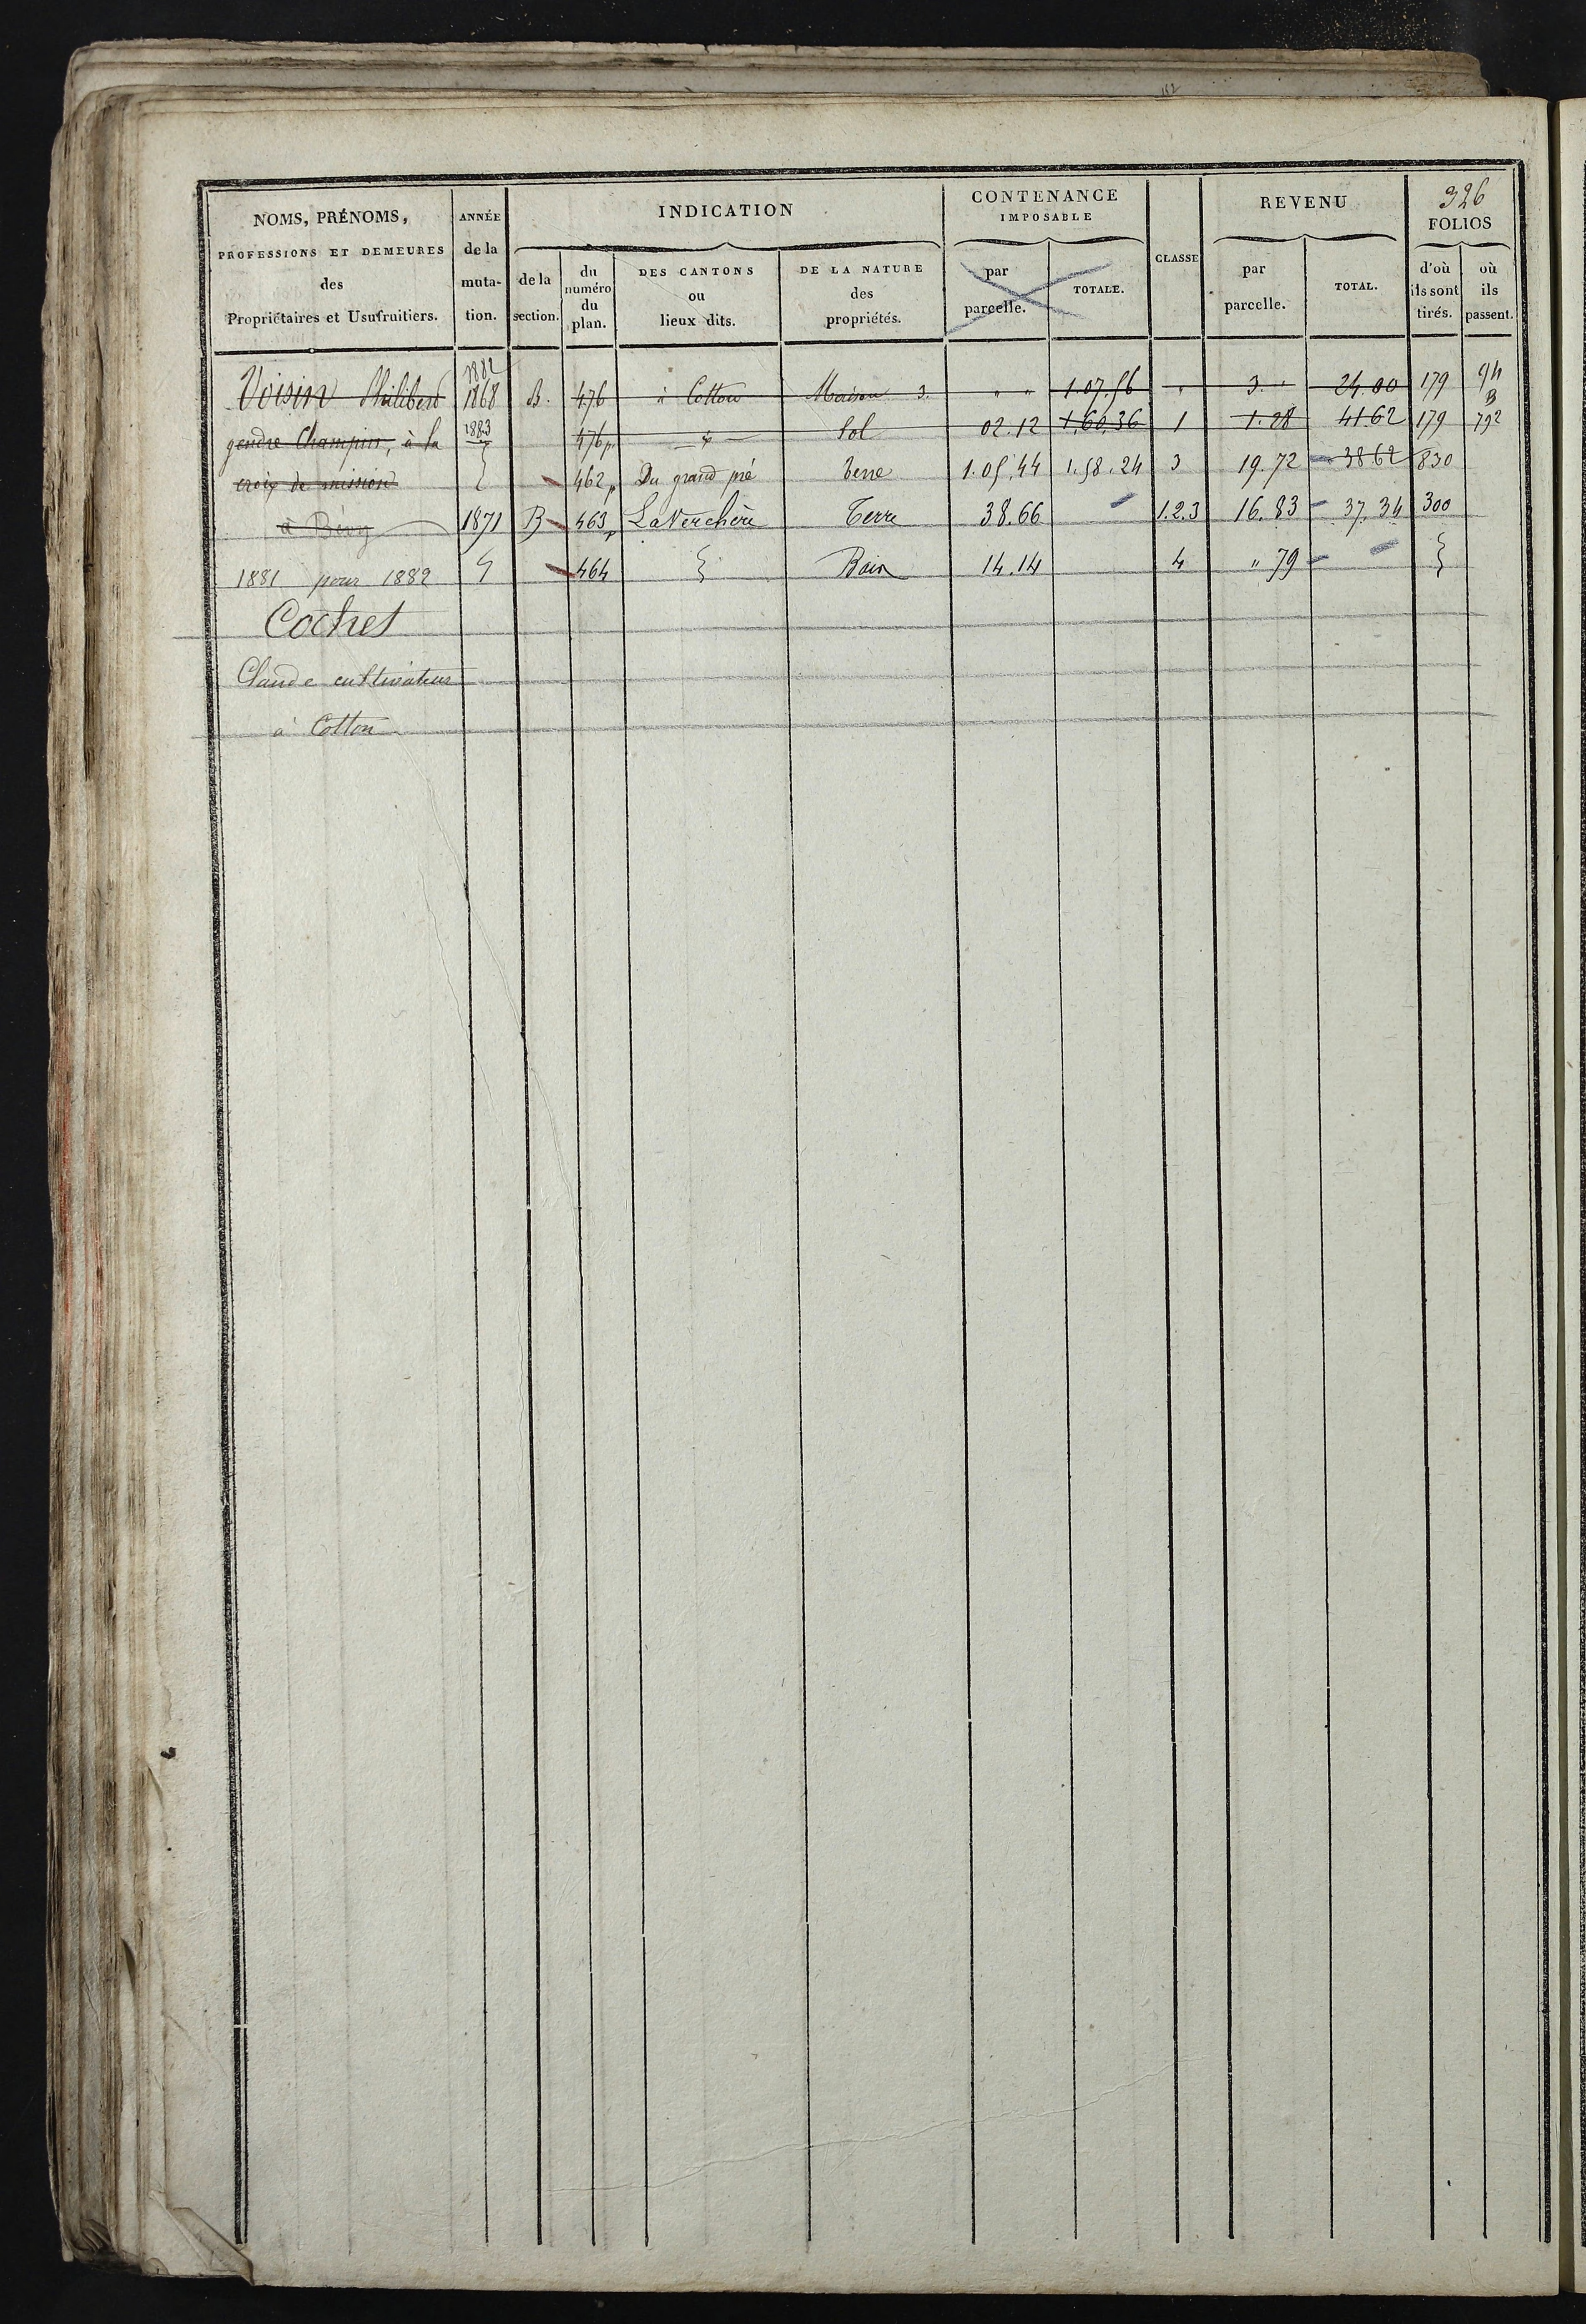 112
326
NOMS, PRÉNOMS,
PROFESSIONS ET DEMEURES
des
Propriétaires et Usufruitiers.
ANNÉE
de la
muta-
tion.
INDICATION
de la
section.
du
numéro
du
plan.
DES CANTONS
ou
lieux dits.
DE LA NATURE
des
propriétés.
CONTENANCE
IMPOSABLE
par
parcelle.
TOTALE.
CLASSE
REVENU
par
parcelle.
TOTAL.
FOLIOS
d'où
ils sont
tirés.
où
ils
passent.
1882
Voisin Philibert 1868 B. 476 à Cotton Maison 3. " " 1.07.56 " 3. " 24.00 179
gendre Champin, à la 1883 476p Sol 02.12 1.60.36 1 1.28 41.62 179 792
croix de mission 462p Du grand pré terre 1.05.44 1.58.24 3 19.72 38.62 830
1871 B 463p La Verchère Terre 38.66 1.2.3 16.83 37.34 300
1881 pour 1882 464 14.14 4 " 79
Cochet
Claude cultivateur
à Cotton